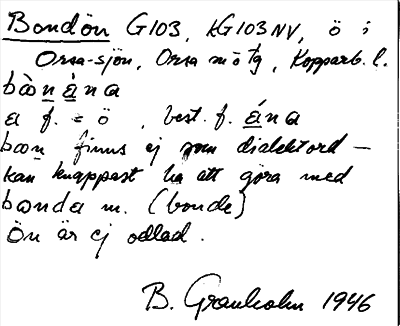 Bondön G103, kG103NV, ö i
Orsa-sjön, Orsa sn o tg, Kopparb. l.
bò̱nána
a f. = ö, best. f. ána
bon finns ej som dialektord –
kan knappast ha att göra med
bonda m. (bonde)
Ön är ej odlad.
B. Granholm 1946